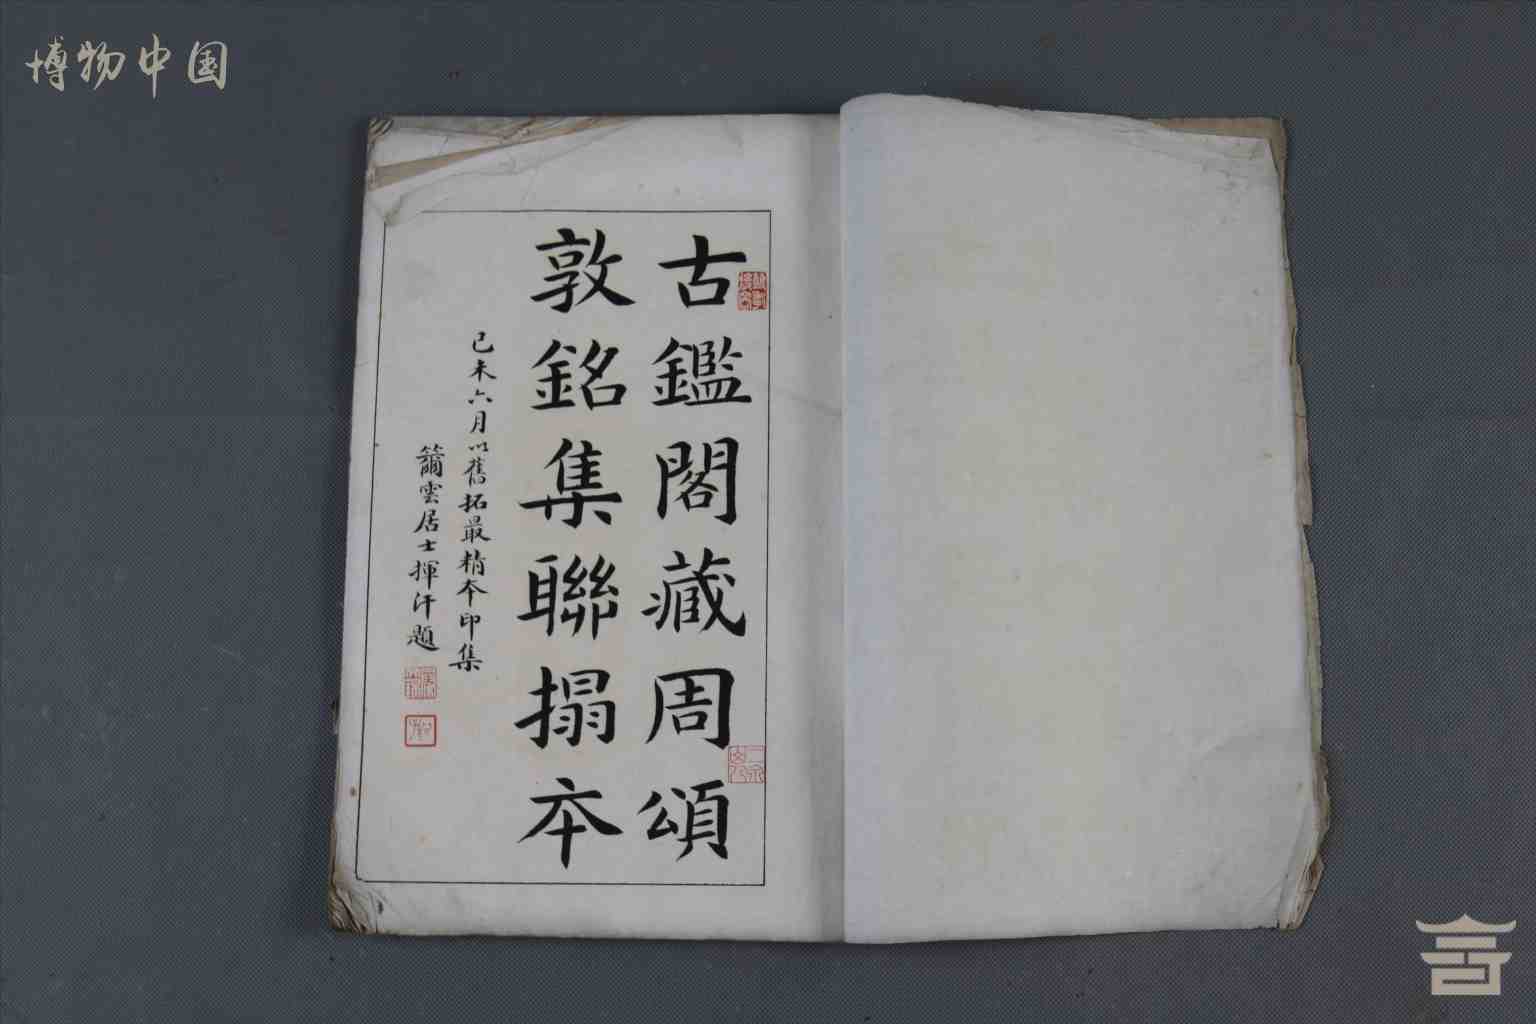 博物中国
古鑑閣藏周頌
敦銘集聯搨本
己未六月以舊拓最精本印集
籋雲居士揮汗題